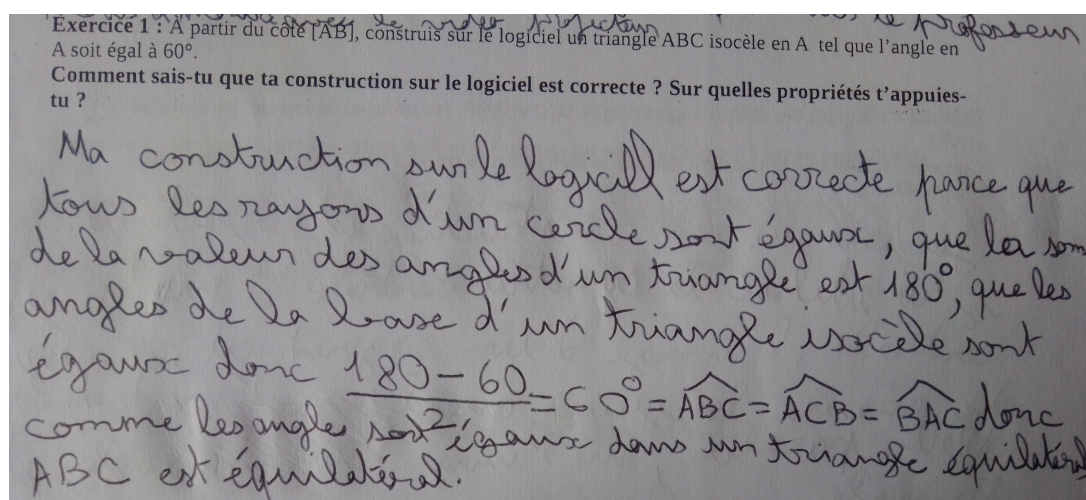 le video projecteur le professeur
Exercice 1 : À partir du côté [AB], construis sur le logiciel un triangle ABC isocèle en A tel que l'angle en
A soit égal à 60°.
Comment sais-tu que ta construction sur le logiciel est correcte ? Sur quelles propriétés t'appuies-
tu ?
Ma construction sur le logicill est correcte parce que
tous les rayons d'un cercle sont égaux, que la som
de la valeur des angles d'un triangle est 180°, que les
angles de la base d'un triangle isocèle sont
égaux donc (180-60)/2 = 60° = ABC = ACB = BAC donc
comme les angles sont égaux dans un triangle équilatéral
ABC est équilatéral.